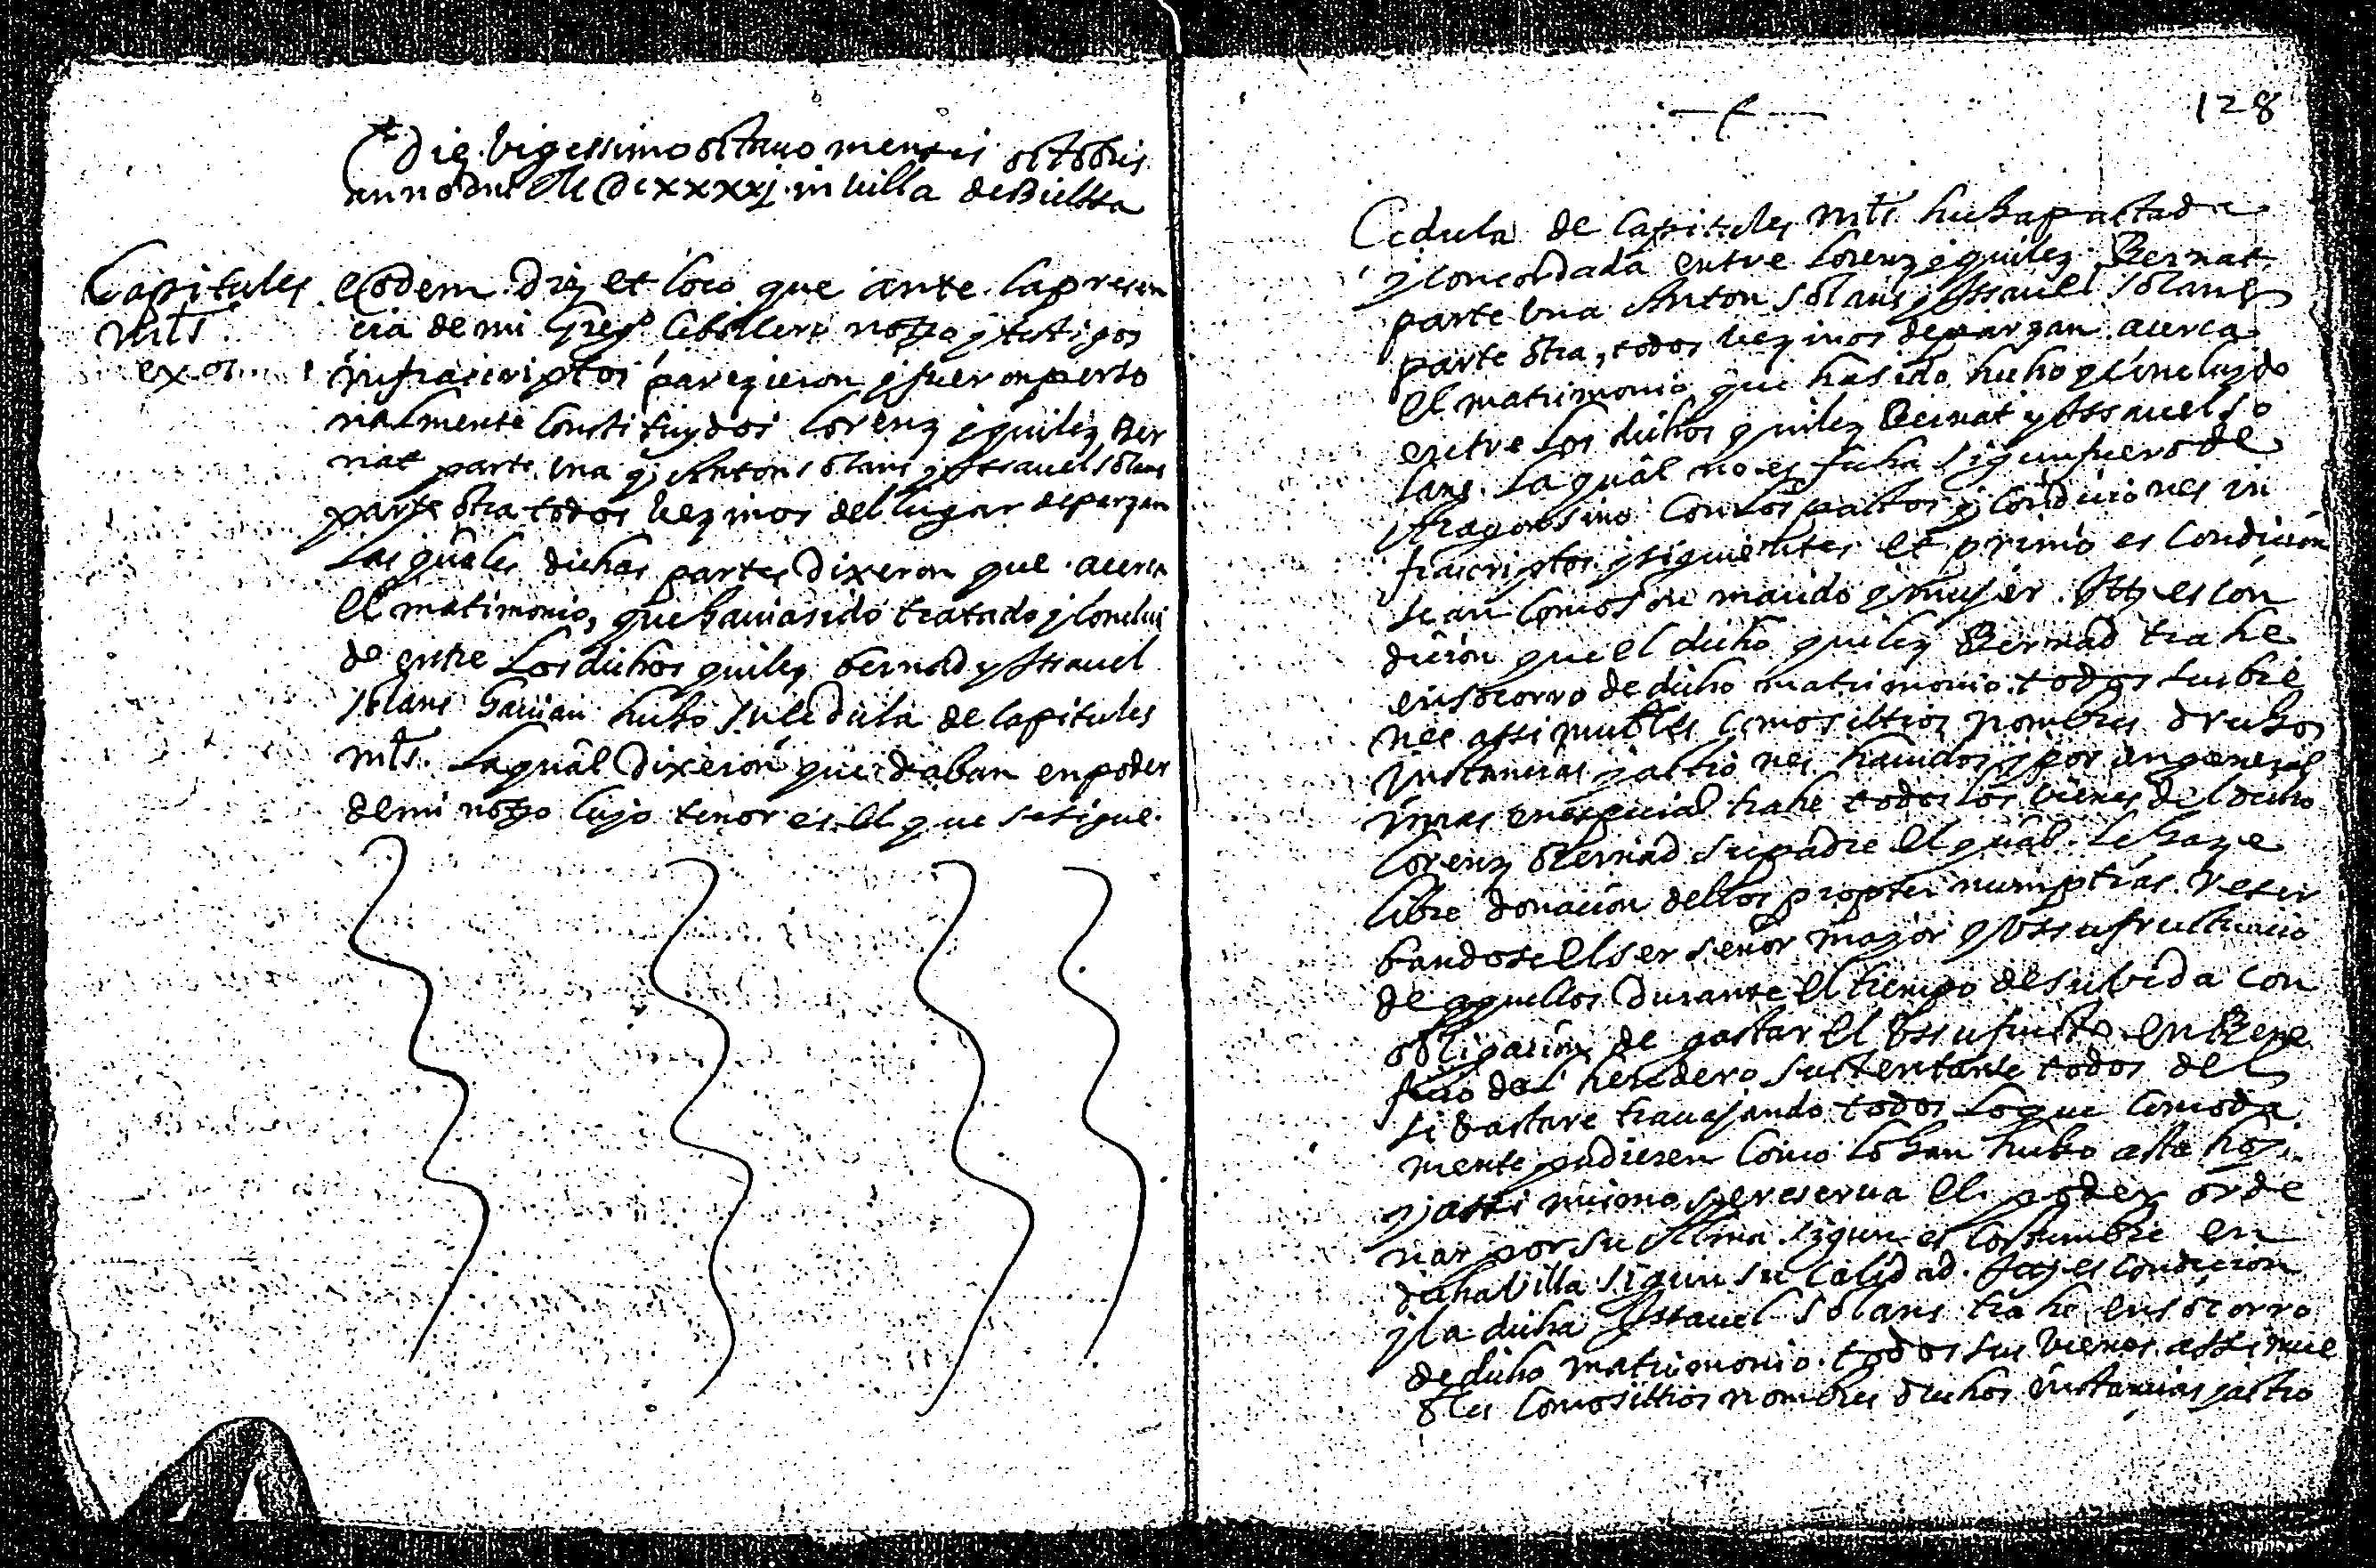 Die vigessimo octavo mensis octobris
anno dni M DCxxxxj in villa de Bielssa
Capitules
mls
eodem die et loco que ante la presen
cia de mi Greg.º Cebollero notº y testigos
infrascriptos parezieron y fueron perso
nalmente constituydos Lorenz y quilez Ber
nat parte una y Anton solans y Issauel solans
parte otra todos vezinos del lugar de parzan
Las quales dichas partes dixeron que acerca
el matimonio, que hauia sido tratado y conclui
do entre Los dichos quilez bernad y Issauel
solans hauian hecho su cedula de capitules
mls. La qual dixeron que daban en poder
de mi notº cuyo tenor es el que se sigue.
128
Cedula de capitules mls hecha pactada
y concordada entre Lorenz y quilez Bernat
parte una Anton solans y Issauel solans
parte otra, todos vezinos de parzan acerca
el matrimonio que ha sido hecho y concluydo
entre los dichos quilez Bernat y Issauel so
lans. La qual no es fecha sigun fuero de
Aragon sino con los pactos y condiciones in
frascriptos y siguientes et primo es condicion
sean como son marido y mujer. Itt es con
dicion que el dicho quilez Bernad trahe
en socorro de dicho matrimonio todos sus bie
nes assi muebles como sittios nombres drechos
instancias y actio nes hauidos y por en general
y mas en especial trahe todos los bienes del dicho
Lorenz Bernad su padre el qual le haze
libre donacion dellos propter numptias reser
bandose el ser señor mayor y ussufructuario
de aquellos durante el tiempo de su vida con
obligacion de gastar el ussufructo en Bene
ficio del heredero sustentante todos del
si bastare trauajando todos lo que comoda
mente pudieren como lo han hecho asta hoy
y assi mismo se reserua el poder orde
nar por su alma sigun es costumbre en
dicha villa sigun su calidad. Itt es condicion
y la dicha Issauel solans trahe en socorro
de dicho matrimonio todos sus bienes assi mue
bles como sittios nombres drechos instancias y actio